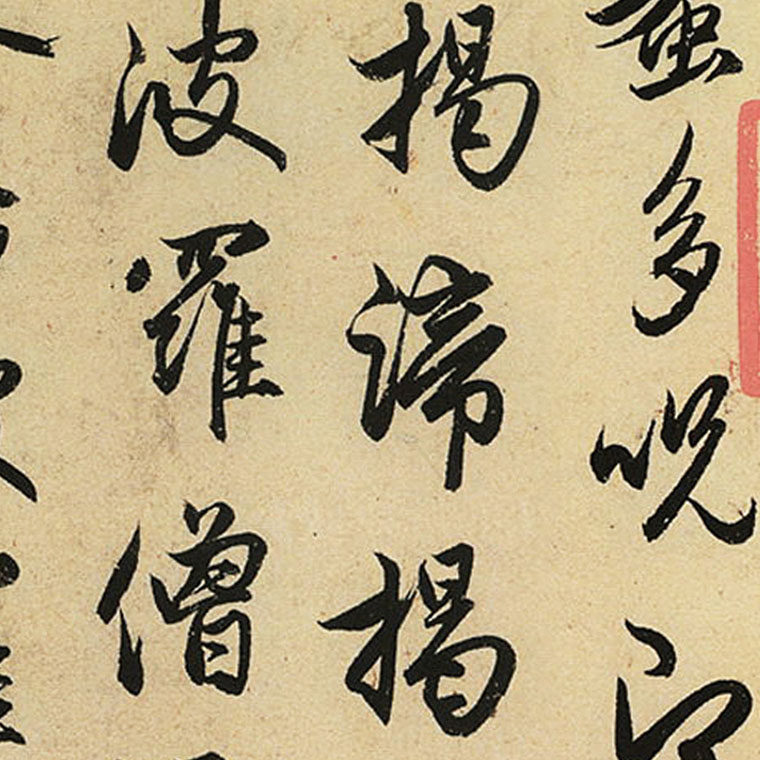 蜜多呪即
揭諦揭
波羅僧